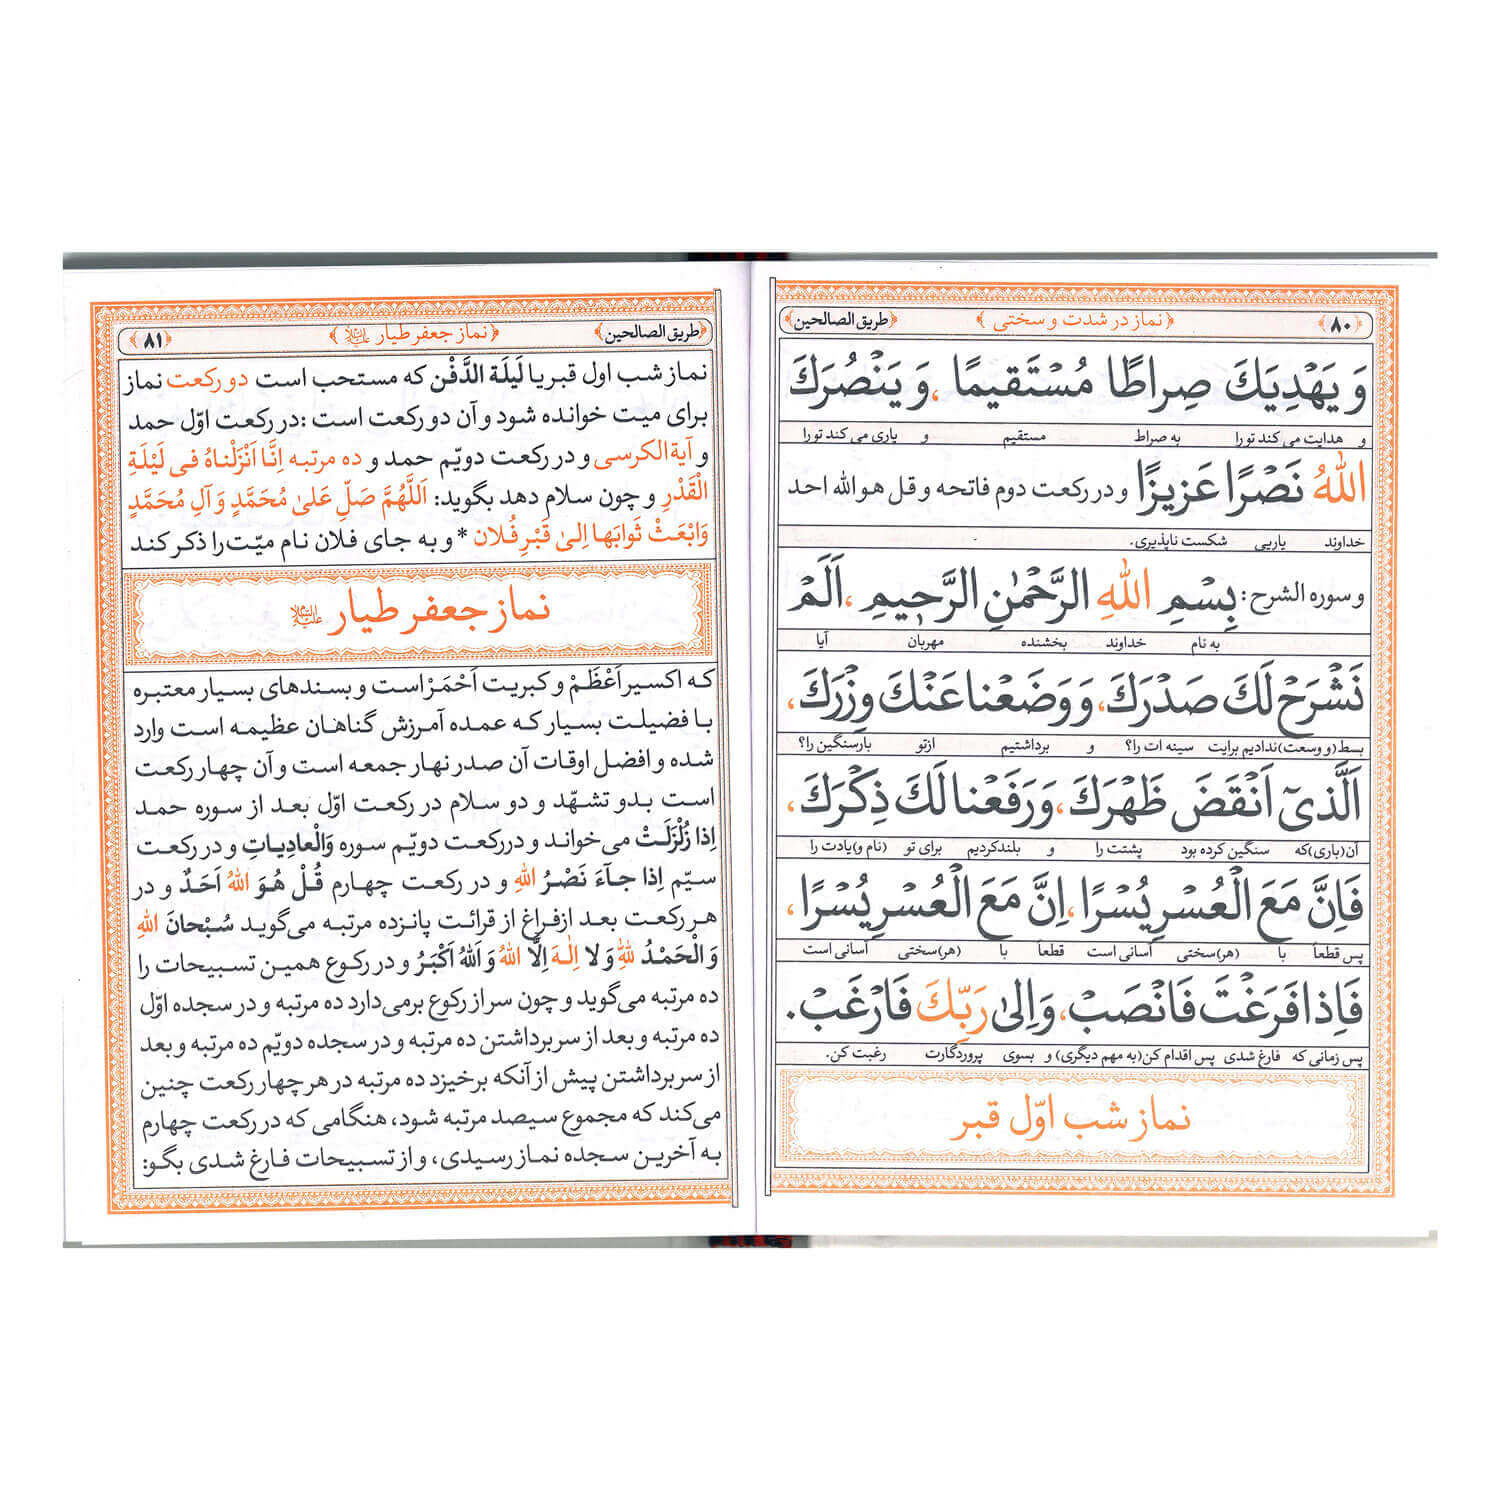 طریق الصالحین ﴿ نماز در شدت و سختی ﴾ ﴿۸۰﴾
وَ یَهْدِیَكَ صِراطًا مُسْتَقیمًا، وَ یَنْصُرَكَ
و هدایت می کند تو را به صراط مستقیم و یاری می کند تو را
اللهُ نَصْرًا عَزیزًا و در رکعت دوم فاتحه و قل هو الله احد
خداوند یاریی شکست ناپذیری.
و سوره الشرح: بِسْمِ اللهِ الرَّحْمٰنِ الرَّحیمِ، اَلَمْ
به نام خداوند بخشنده مهربان آیا
نَشْرَحْ لَكَ صَدْرَكَ، وَ وَضَعْنا عَنْكَ وِزْرَكَ،
بسط(و وسعت)ندادیم برایت سینه ات را؟ و برداشتیم ازتو بارسنگین را؟
اَلَّذیٓ اَنْقَضَ ظَهْرَكَ، وَ رَفَعْنا لَكَ ذِكْرَكَ،
آن(باری)که سنگین کرده بود پشتت را و بلندکردیم برای تو (نام و)یادت را
فَاِنَّ مَعَ الْعُسْرِ یُسْرًا، اِنَّ مَعَ الْعُسْرِ یُسْرًا،
پس قطعاً با (هر)سختی آسانی است قطعاً با (هر)سختی آسانی است
فَاِذا فَرَغْتَ فَانْصَبْ، وَ اِلیٰ رَبِّكَ فَارْغَبْ.
پس زمانی که فارغ شدی پس اقدام کن(به مهم دیگری) و بسوی پروردگارت رغبت کن.
نماز شب اوّل قبر
طریق الصالحین ﴿ نماز جعفر طیار علیه السلام ﴾ ﴿۸۱﴾
نماز شب اول قبر یا لَیلَة الدَّفْن که مستحب است دو رکعت نماز
برای میت خوانده شود و آن دو رکعت است : در رکعت اوّل حمد
و آیة الکرسی و در رکعت دویّم حمد و ده مرتبه اِنّا اَنْزَلْناهُ فی لَیْلَةِ
الْقَدْرِ و چون سلام دهد بگوید: اَللّهُمَّ صَلِّ عَلیٰ مُحَمَّدٍ وَ آلِ مُحَمَّدٍ
وَابْعَثْ ثَوابَها اِلیٰ قَبْرِ فُلان * و به جای فلان نام میّت را ذکر کند
نماز جعفر طیار علیه السلام
که اکسیر اَعْظَمْ و کبریت اَحْمَرْ است و بسندهای بسیار معتبره
با فضیلت بسیار که عمده آمرزش گناهان عظیمه است وارد
شده و افضل اوقات آن صدر نهار جمعه است و آن چهار رکعت
است بدو تشهّد و دو سلام در رکعت اوّل بعد از سوره حمد
اِذا زُلْزِلَتْ می‌خواند و دررکعت دویّم سوره وَالْعادِیاتِ و در رکعت
سیّم اِذا جآءَ نَصْرُ اللهِ و در رکعت چهارم قُلْ هُوَ اللهُ اَحَدٌ و در
هر رکعت بعد ازفراغ از قرائت پانزده مرتبه می‌گوید سُبْحانَ اللهِ
وَ الْحَمْدُ لِلّهِ وَ لا اِلٰهَ اِلَّا اللهُ وَ اللهُ اَکْبَرُ و در رکوع همین تسبیحات را
ده مرتبه می‌گوید و چون سر از رکوع برمی‌دارد ده مرتبه و در سجده اوّل
ده مرتبه و بعد از سر برداشتن ده مرتبه و در سجده دویّم ده مرتبه و بعد
از سر برداشتن پیش از آنکه برخیزد ده مرتبه در هر چهار رکعت چنین
می‌کند که مجموع سیصد مرتبه شود، هنگامی که در رکعت چهارم
به آخرین سجده نماز رسیدی، و از تسبیحات فارغ شدی بگو: